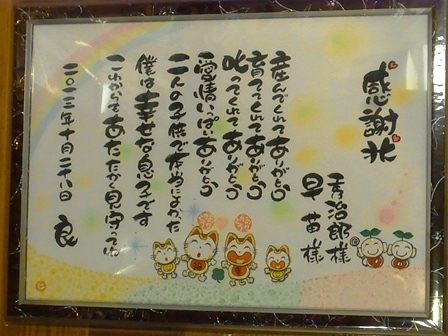 感謝状
秀治郎様
早苗様
産んでくれてありがとう
育ててくれてありがとう
叱ってくれてありがとう
愛情いっぱいありがとう
二人の子供で本当によかった
僕は幸せな息子です
これからもあたたかく見守ってね
二〇一三年十月二十八日
良